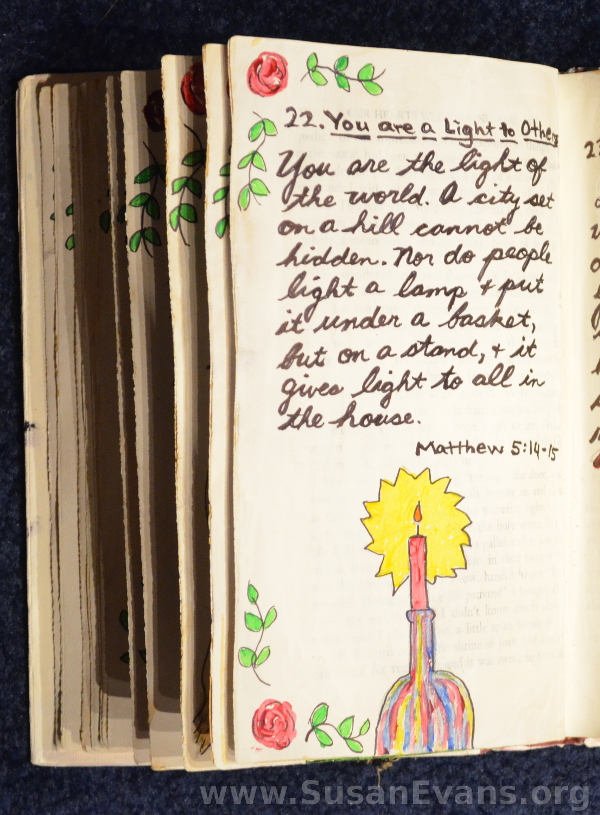 22. You are a Light to Others
You are the light of
the world. A city set
on a hill cannot be
hidden. Nor do people
light a lamp + put
it under a basket,
but on a stand, + it
gives light to all in
the house.
Matthew 5:14-15
www.SusanEvans.org